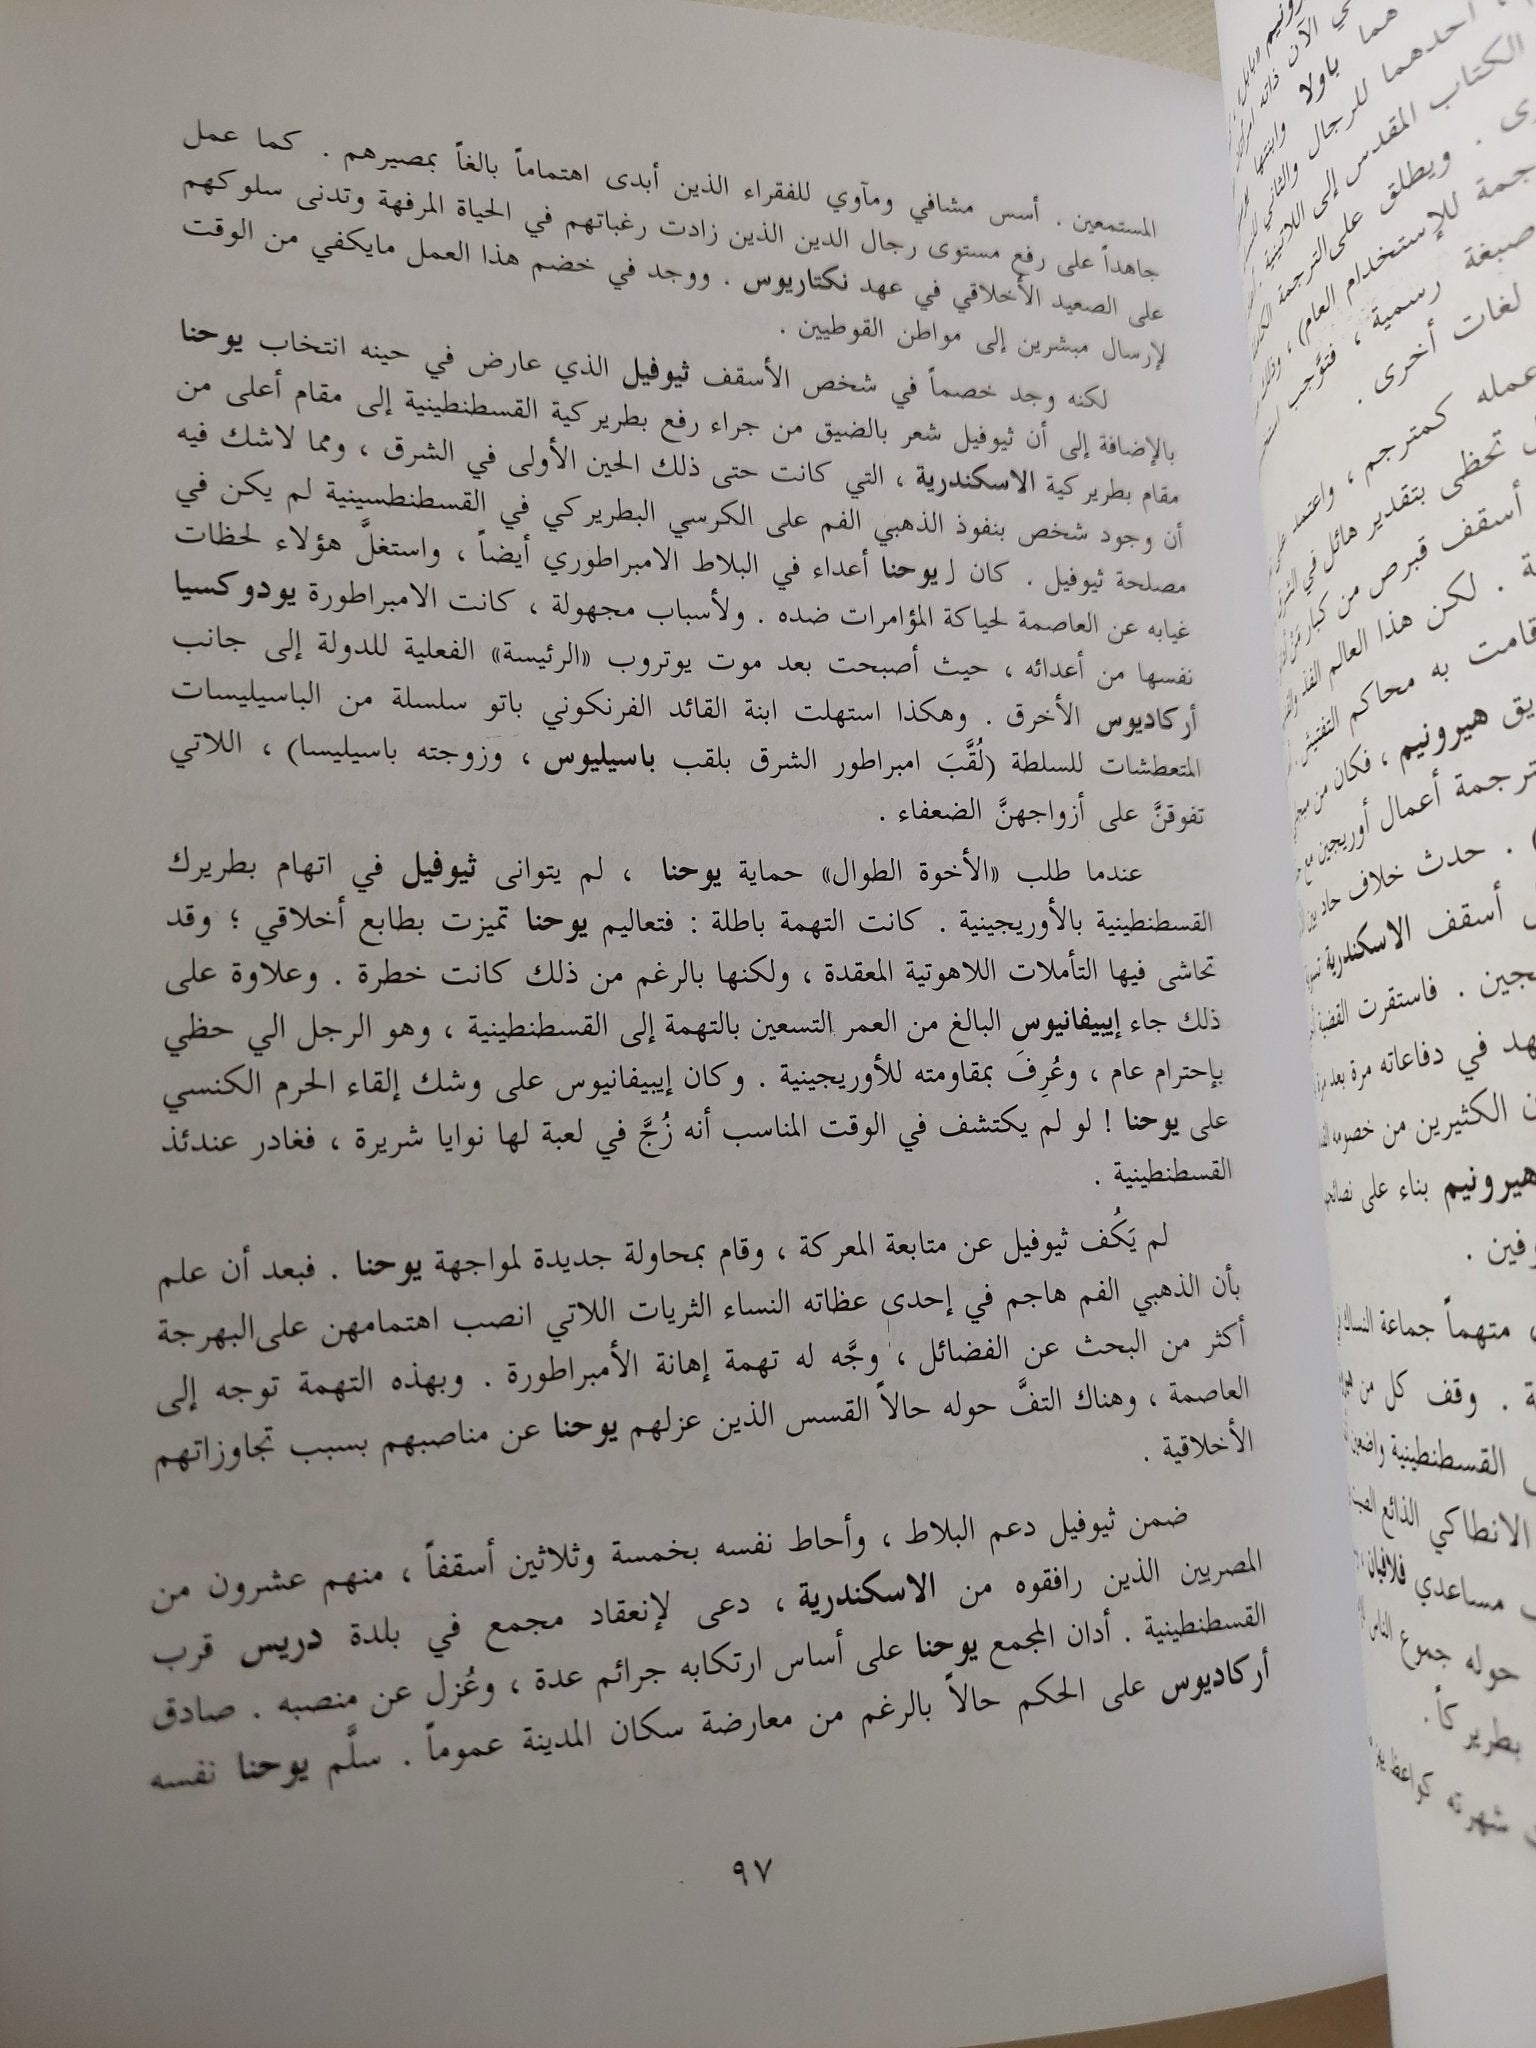 المستمعين . أسس مشافي ومآوي للفقراء الذين أبدى اهتماماً بالغاً بمصيرهم . كما عمل
جاهداً على رفع مستوى رجال الدين الذين زادت رغباتهم في الحياة المرفهة وتدنى سلوكهم
على الصعيد الأخلاقي في عهد نكتاريوس . ووجد في خضم هذا العمل مايكفي من الوقت
لإرسال مبشرين إلى مواطن القوطيين .
لكنه وجد خصماً في شخص الأسقف ثيوفيل الذي عارض في حينه انتخاب يوحنا
بالإضافة إلى أن ثيوفيل شعر بالضيق من جراء رفع بطريركية القسطنطينية إلى مقام أعلى من
مقام بطريركية الاسكندرية ، التي كانت حتى ذلك الحين الأولى في الشرق ، ومما لاشك فيه
أن وجود شخص بنفوذ الذهبي الفم على الكرسي البطريركي في القسطنطسينية لم يكن في
مصلحة ثيوفيل . كان لـ يوحنا أعداء في البلاط الامبراطوري أيضاً ، واستغلَّ هؤلاء لحظات
غيابه عن العاصمة لحياكة المؤامرات ضده . ولأسباب مجهولة ، كانت الامبراطورة يودوكسيا
نفسها من أعدائه ، حيث أصبحت بعد موت يوتروب «الرئيسة» الفعلية للدولة إلى جانب
أركاديوس الأخرق . وهكذا استهلت ابنة القائد الفرنكوني باتو سلسلة من الباسيليسات
المتعطشات للسلطة (لُقَّبَ امبراطور الشرق بلقب باسيليوس ، وزوجته باسيليسا) ، اللاتي
تفوقنَّ على أزواجهنَّ الضعفاء .
عندما طلب «الأخوة الطوال» حماية يوحنا ، لم يتوانى ثيوفيل في اتهام بطريرك
القسطنطينية بالأوريجينية . كانت التهمة باطلة : فتعاليم يوحنا تميزت بطابع أخلاقي ؛ وقد
تحاشى فيها التأملات اللاهوتية المعقدة ، ولكنها بالرغم من ذلك كانت خطرة . وعلاوة على
ذلك جاء إيبيفانيوس البالغ من العمر التسعين بالتهمة إلى القسطنطينية ، وهو الرجل الي حظي
بإحترام عام ، وعُرِفَ بمقاومته للأوريجينية . وكان إيبيفانيوس على وشك إلقاء الحرم الكنسي
على يوحنا ! لو لم يكتشف في الوقت المناسب أنه زُجَّ في لعبة لها نوايا شريرة ، فغادر عندئذ
القسطنطينية .
لم يَكُف ثيوفيل عن متابعة المعركة ، وقام بمحاولة جديدة لمواجهة يوحنا . فبعد أن علم
بأن الذهبي الفم هاجم في إحدى عظاته النساء الثريات اللاتي انصب اهتمامهن على البهرجة
أكثر من البحث عن الفضائل ، وجَّه له تهمة إهانة الأمبراطورة . وبهذه التهمة توجه إلى
العاصمة ، وهناك التفَّ حوله حالاً القسس الذين عزلهم يوحنا عن مناصبهم بسبب تجاوزاتهم
الأخلاقية .
ضمن ثيوفيل دعم البلاط ، وأحاط نفسه بخمسة وثلاثين أسقفاً ، منهم عشرون من
المصريين الذين رافقوه من الاسكندرية ، دعى لإنعقاد مجمع في بلدة دريس قرب
القسطنطينية . أدان المجمع يوحنا على أساس ارتكابه جرائم عدة ، وعُزل عن منصبه . صادق
أركاديوس على الحكم حالاً بالرغم من معارضة سكان المدينة عموماً . سلَّم يوحنا نفسه
٩٧
هما ياولا وابنتها
احدهما للرجال والثاني
الكتاب المقدس إلى اللاتينية
. ويطلق على الترجمة
للإستخدام العام) ،
صبغة رسمية ، فتوَّجب
لغات أخرى .
عمله كمترجم ، واعتمد
تحظى بتقدير هائل في
أسقف قبرص من كبار
. لكن هذا العالم الفذ
قامت به محاكم التفتيش
هيرونيم ، فكان من
ترجمة أعمال أوريجين مع
. حدث خلاف حاد بين
أسقف الاسكندرية
. فاستقرت القضية
في دفاعاته مرة بعد مرة
الكثيرين من خصومه
هيرونيم بناء على
متهماً جماعة النساك
. وقف كل من
القسطنطينية
الانطاكي الذائع
مساعدي فلافيان
حوله جموع الناس
بطريركاً .
شهرته كواعظ